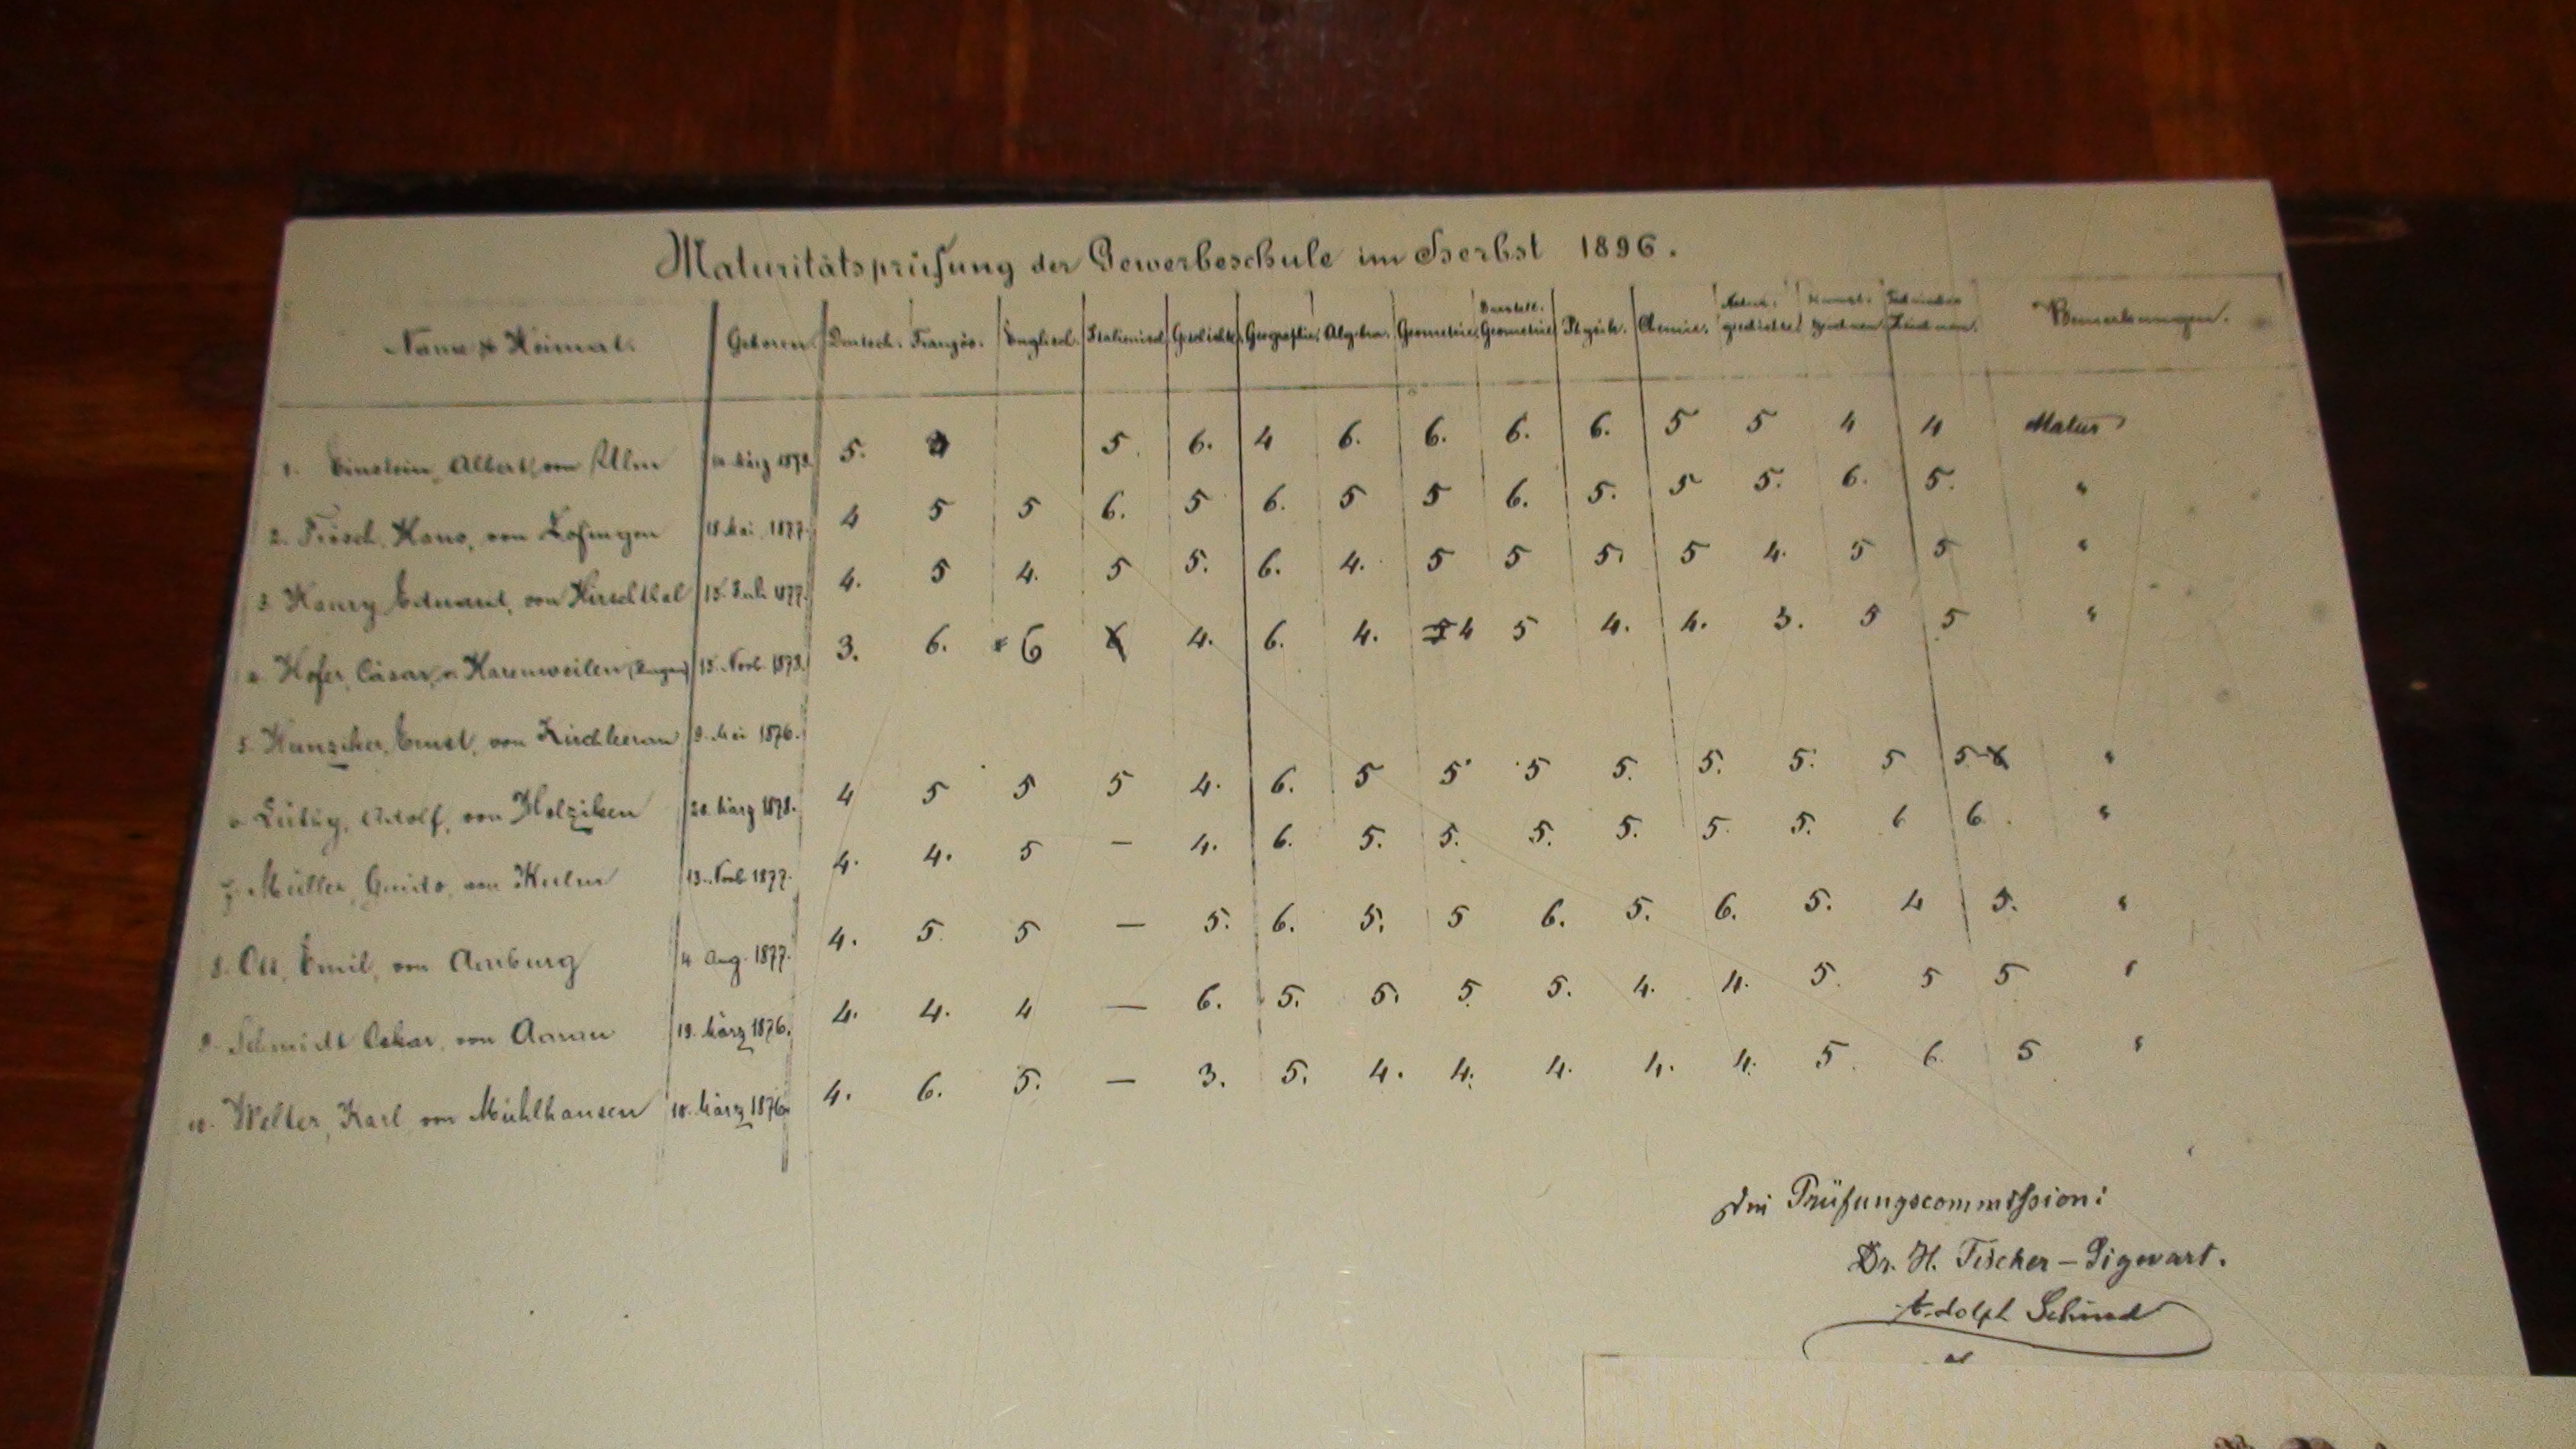 Maturitätsprüfung der Gewerbeschule im Herbst 1896.
Name & Heimat. Geboren Deutsch. Französ. Englisch. Italienisch Geschichte Geographie Algebra. Geometrie. Darstell. Geometrie Physik. Chemie. Natur-geschichte Kunst-zeichnen Technisches Zeichnen. Bemerkungen.
1. Einstein, Albert, von Ulm 14. März 1879. 5. 5. 6. 4 6. 6. 6. 6. 5 5 4 4 Matur
2. Frösch, Hans, von Zofingen 18. Mai 1877. 4 5 5 6. 5 6. 5 5 6. 5. 5 5. 6. 5. "
3. Haury Eduard, von Hirschthal 15. 1877. 4. 5 4. 5 5. 6. 4. 5 5 5. 5 4. 5 5 "
4. Hofer, Cäsar, v. 15. Novb. 1878. 3. 6. 6 4. 6. 4. 4 5 4. 4. 3. 5 5 "
5. Hunziker, Ernst, von 9. Mai 1876.
6. Lüthy, Adolf, von Holziken 20. März 1878. 4 5 5 5 4. 6. 5 5 5 5. 5. 5. 5 5 "
7. Müller, Guido, von Kulm 13. Novb 1877. 4. 4. 5 — 4. 6. 5. 5. 5. 5. 5. 5. 6 6. "
8. Ott, Emil, von Aarburg 4 Aug. 1877. 4. 5. 5 — 5. 6. 5. 5 6. 5. 6. 5. 4 5. "
9. Schmidt Oskar, von Aarau 19. März 1876. 4. 4. 4 — 6. 5. 5. 5. 5. 4. 4. 5. 5 5 "
10. Welter, Karl von Mühlhausen 18. März 1876. 4. 6. 5. — 3. 5. 4. 4. 4. 4. 4. 5. 6. 5 "
Die Prüfungscommission:
Dr. H. Fischer-Sigwart.
Adolph